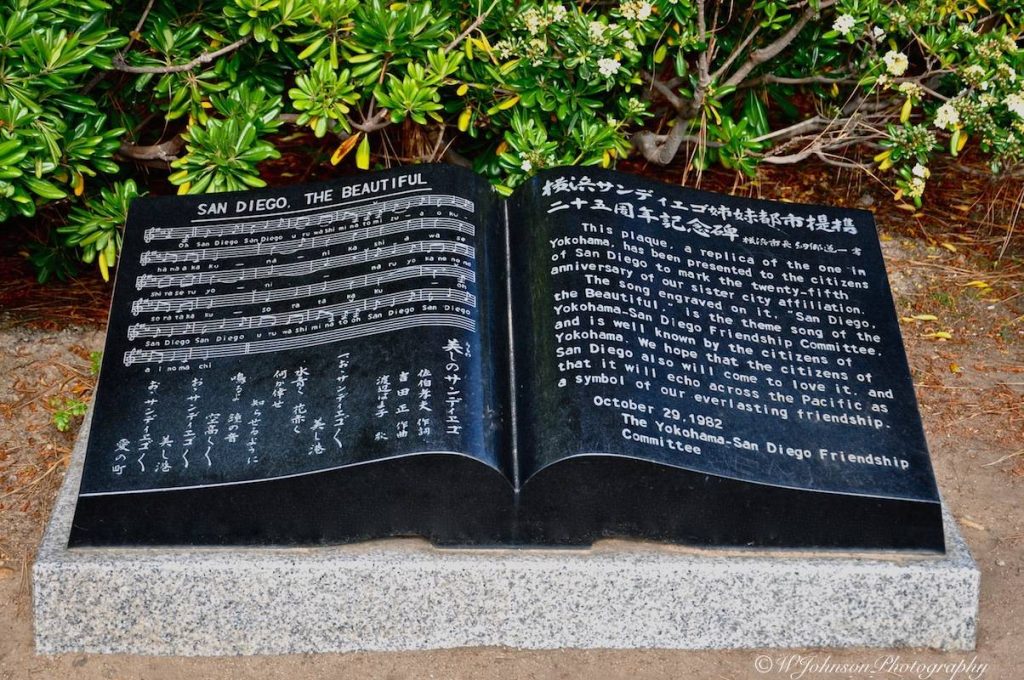 SAN DIEGO, THE BEAUTIFUL
Oh San Diego San Diego u ru wa shi mi na to mi zu a o ku
ha na a ka ku na ni ka shi a wa se
shi ra se ru yo ni na ru yo ka ne no ne
so ra ta ka ku so ra ta ka ku oh
San Diego San Diego u ru wa shi mi na to oh San Diego San Diego
a i no ma chi
美しのサンディエゴ
佐伯孝夫 作詞
吉田正 作曲
渡辺はま子 歌
「お〻サンディエゴ〱
美し港
水青く 花赤く
何か倖せ
知らせるように
鳴るよ 鐘の音
空高く〱
お〻サンディエゴ〱
美し港
お〻サンディエゴ〱
愛の町
横浜サンディエゴ姉妹都市提携
二十五周年記念碑 横浜市長 細郷道一書
This plaque, a replica of the one in
Yokohama, has been presented to the citizens
of San Diego to mark the twenty-fifth
anniversary of our sister city affiliation.
The song engraved on it, "San Diego,
the Beautiful," is the theme song of the
Yokohama-San Diego Friendship Committee,
and is well known by the citizens of
Yokohama. We hope that the citizens of
San Diego also will come to love it, and
that it will echo across the Pacific as
a symbol of our everlasting friendship.
October 29,1982
The Yokohama-San Diego Friendship
Committee
©WJohnsonPhotography